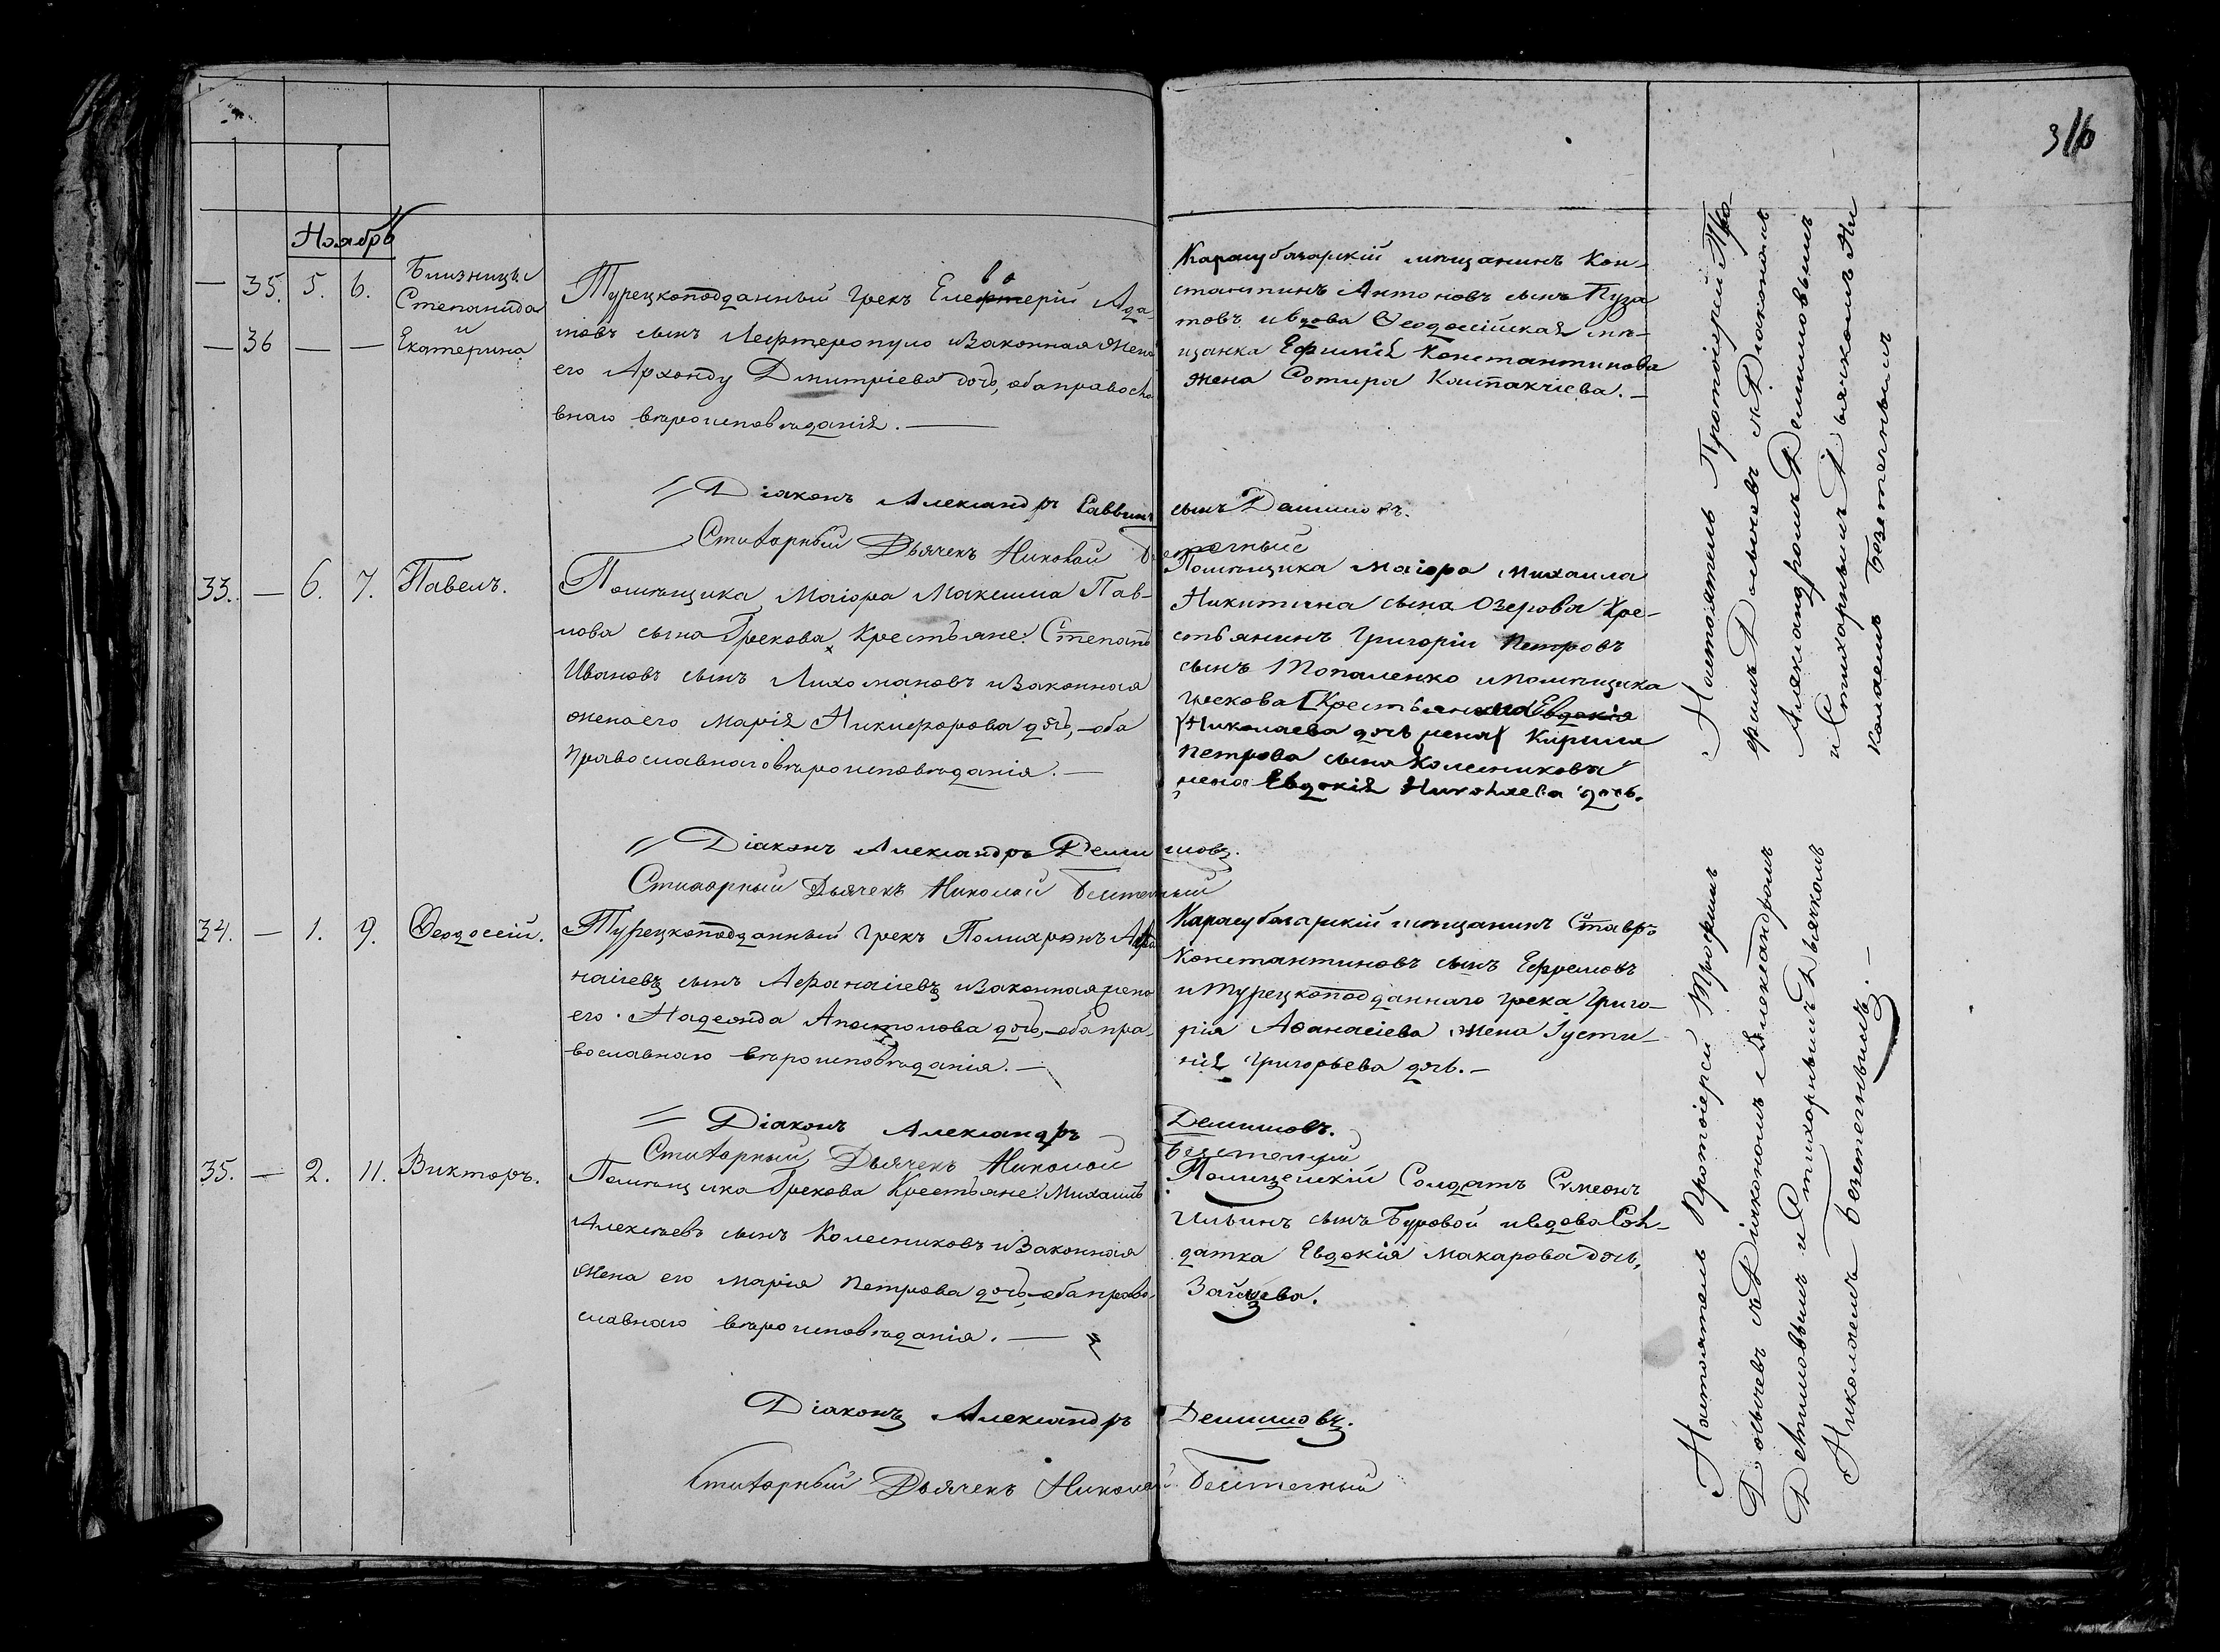 316
Ноябрь
— 35. 5. 6. Близницы
Степанида
и
— 36 — — Екатерина
Турецкоподданный Грекъ Елефтерій Ада
мовъ сынъ Лефтеропуло и Законная Жена
его Архонду Дмитріева дочь, оба правосла
внаго вѣроисповѣданія. —
Карасубазарскій мѣщанинъ Кон-
стантинъ Антоновъ сынъ Пуза
товъ и вдова Ѳеодосійская мѣ-
щанка Ефимія Константинова
жена Сотира
Діаконъ Александръ Саввинъ сынъ Демишовъ.
Стихарный Дьячекъ Николай
33. — 6. 7. Павелъ.
Помѣщика Маіора Максима Пав-
лова сына Грекова Крестьяне: Степанъ
Ивановъ сынъ Лихомановъ и Законная
жена его Марія Никифорова дочь, — оба
Православнаго вѣроисповѣданія. —
Помѣщика Маіора Михаила
Никитина сына Озерова Кре-
стьянинъ Григорій Петровъ
сынъ Топаленко и помѣщика
Грекова Крестьянина Евдокія
Николаева дочь жена Кирила
Петрова сына Колесникова
жена Евдокія Николаева дочь.
Діаконъ Александръ Демишовъ.
Стихарный Дьячекъ Николай Безтечный
34. — 1. 9. Ѳеодосій.
Турецкоподданный Грекъ Полихронъ Аѳа
насіевъ сынъ Афанасіевъ и Законная жена
его Надежда Апостолова дочь, — оба пра-
вославнаго вѣроисповѣданія. —
Карасубазарскій мѣщанинъ Ставро
Константиновъ сынъ Ефремовъ
и Турецкоподданнаго грека Григо-
рія Аѳанасіева жена Густи-
нія Григорьева дочь. —
Діаконъ Александръ Демишовъ.
Стихарный Дьячекъ Николай Безтечный
35. — 2. 11. Викторъ.
Помѣщика Грекова Крестьяне: Михаилъ
Алексѣевъ сынъ Колесниковъ и Законная
Жена его Марія Петрова дочь, — оба право-
славнаго вѣроисповѣданія. —
Полицейскій Солдатъ Симеонъ
Ильинъ сынъ Буровой и вдова Сол-
датка Евдокія Макарова дочь,
Зайцева.
Діаконъ Александръ Демишовъ.
Стихарный Дьячекъ Николай Безтечный
Настоятель Протоіерей Тро-
фимъ съ Діакономъ
Александромъ Демишовымъ
и Стихарнымъ Дьячкомъ Ни
колаемъ Безтечнымъ
Настоятель Протоіерей Трофимъ
съ Діакономъ Александромъ
Демишовымъ и Стихарнымъ Дьячкомъ
Николаемъ Безтечнымъ. —